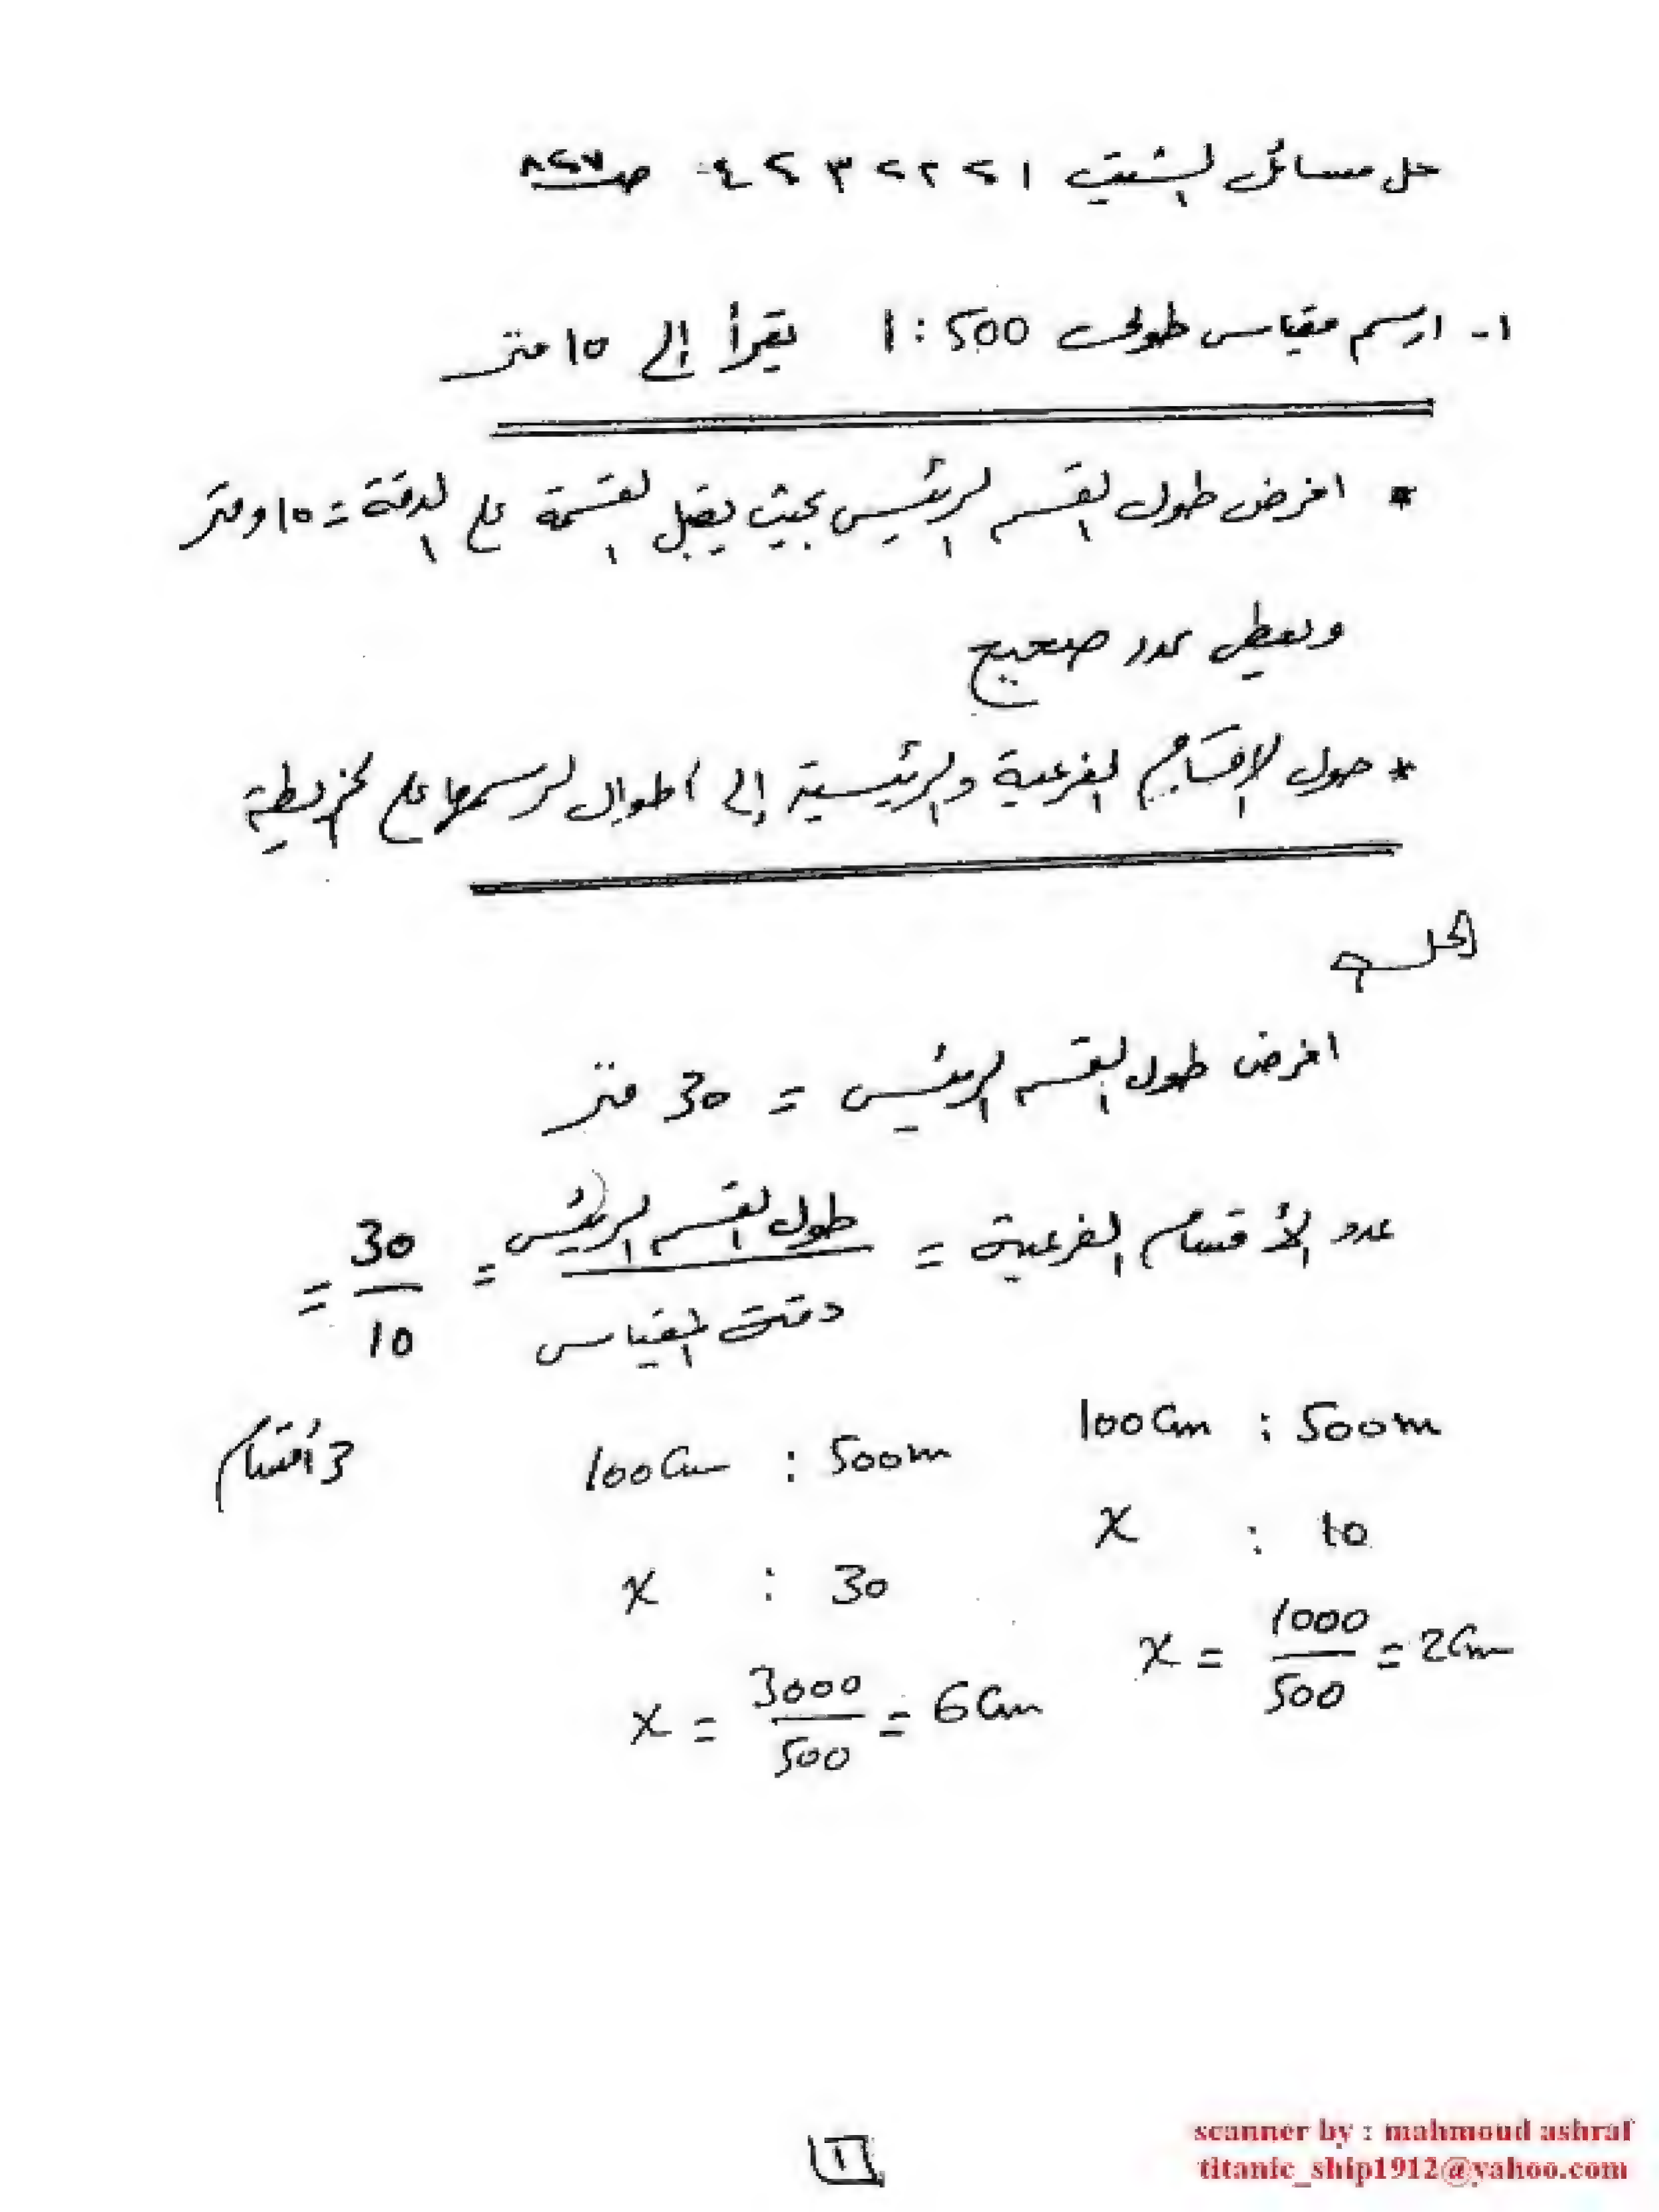 حل مسائل الشيت ١ ، ٢ ، ٣ ، ٤ ص ٨،٧
١- ارسم مقياس طولى 1:500 يقرأ إلى 10 متر
* افرض طول القسم الرئيسى بحيث يقبل القسمة على الدقة = 10 متر
ويعطى عدد صحيح
* حول الاقسام الفرعية والرئيسية إلى أطوال لرسمها على الخريطة
الحل
افرض طول القسم الرئيسى = 30 متر
عدد الأقسام الفرعية = طول القسم الرئيسى / دقة المقياس = 30 / 10 =
3 أقسام
100 Cm : 500m
x : 10
x = 1000 / 500 = 2 Cm
100 Cm : 500m
x : 30
x = 3000 / 500 = 6 Cm
١
scanner by : mahmoud ashraf
titanic_ship1912@yahoo.com